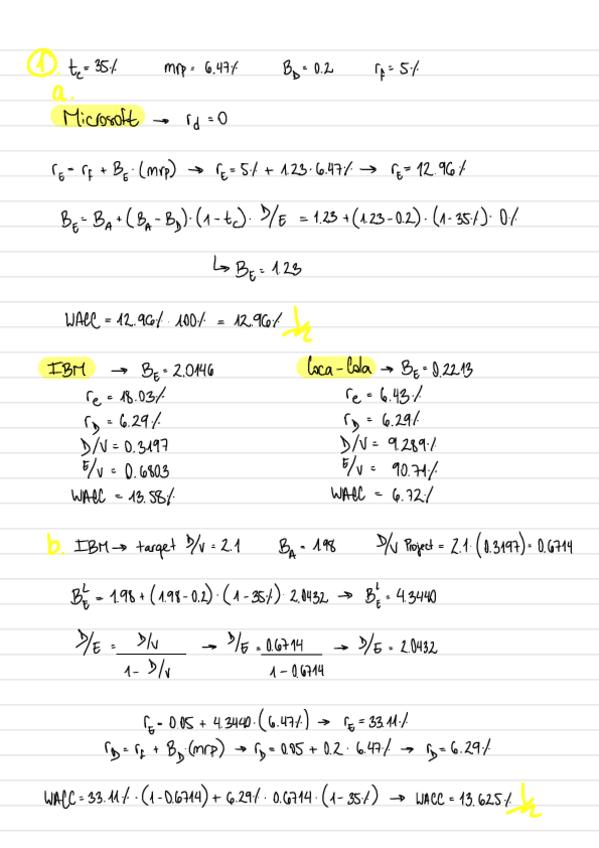 1. tc = 35% mrp = 6.47% B_D = 0.2 r_f = 5%
a.
Microsoft → r_d = 0
r_E = r_f + B_E · (mrp) → r_E = 5% + 1.23 · 6.47% → r_E = 12.96%
B_E = B_A + (B_A - B_D) · (1 - t_c) · D/E = 1.23 + (1.23 - 0.2) · (1 - 35%) · 0%
↳ B_E = 1.23
WACC = 12.96% · 100% = 12.96%
IBM → B_E = 2.0146
r_e = 18.03%
r_D = 6.29%
D/V = 0.3197
E/V = 0.6803
WACC = 13.58%
Coca-Cola → B_E = 0.2213
r_e = 6.43%
r_D = 6.29%
D/V = 9.289%
E/V = 90.71%
WACC = 6.72%
b. IBM → target D/V = 2.1 B_A = 1.98 D/V Project = 2.1 · (0.3197) = 0.6714
B_E^L = 1.98 + (1.98 - 0.2) · (1 - 35%) · 2.0432 → B_E^L = 4.3440
D/E = D/V / 1 - D/V → D/E = 0.6714 / 1 - 0.6714 → D/E = 2.0432
r_E = 0.05 + 4.3440 · (6.47%) → r_E = 33.11%
r_D = r_f + B_D · (mrp) → r_D = 0.05 + 0.2 · 6.47% → r_D = 6.29%
WACC = 33.11% · (1 - 0.6714) + 6.29% · 0.6714 · (1 - 35%) → WACC = 13.625%